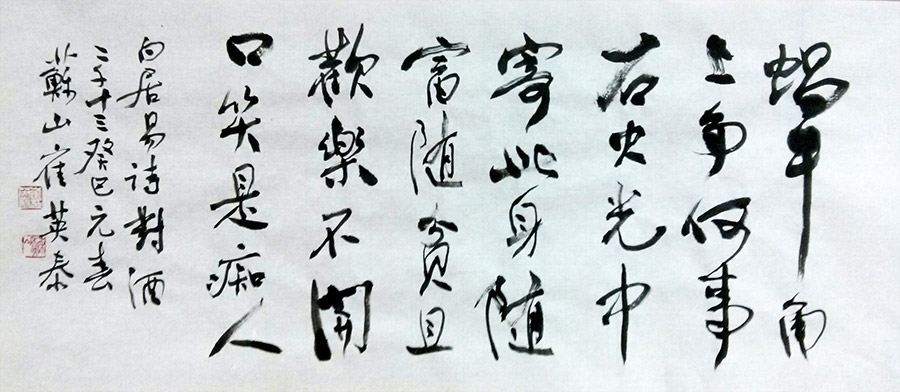 蝸牛角
上争何事
石火光中
寄此身随
富随貧且
歡樂不開
口笑是痴人
白居易诗對酒
二千十三癸巳元春
蘇山崔英泰